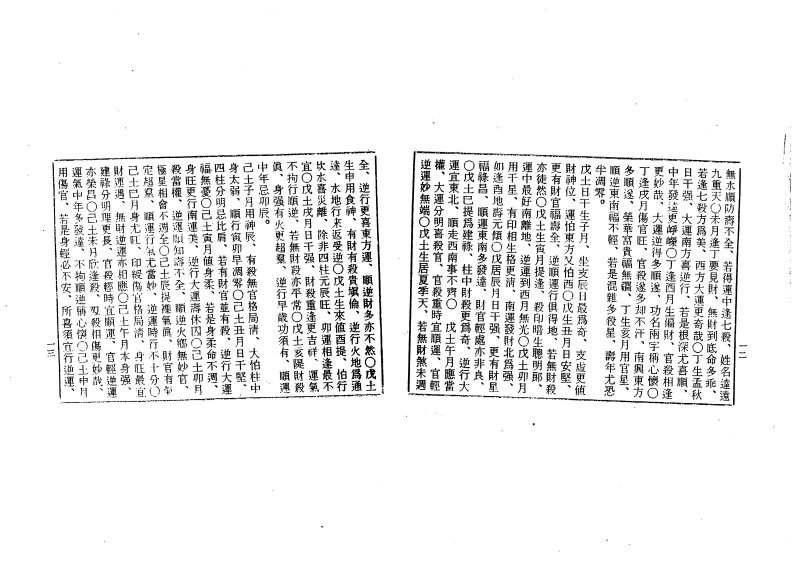 無水順防壽不全、若得運中逢七殺、姓名達遠
九重天〇未月逢丁要見財、無財到底命多乖、
若逢七殺方爲美、西方大運更奇哉〇丁生孟秋
日干强、大運南方喜逆行、若是根深尤喜順、
中年發達更崢嶸〇丁逢酉月生偏財、官殺相逢
更妙哉、大運逆得多順遂、功名兩字稱心懷〇
丁逢戌月傷官旺、官殺遂多却不汗、南興東方
多順遂、榮華富貴福無疆、丁生亥月用官星、
順逆東南福不輕、若是混雜多殺星、壽年尤恐
半凋零。
戊土日干生子月、坐支辰日最爲奇、支虛更値
財神位、運怕東方又怕西〇戊生丑月日安堅、
更有財官福壽全、逆順運行俱得地、若無財殺
亦徒然〇戊土生寅月提逢、殺印暗生聰明郎、
運中最好南離地、逆運到西月無光〇戊土卯月
用干星、有印相生格更清、南運發財北爲强、
如逢酉地壽元傾〇戊居辰月日干强、更有財星
福祿昌、順運東南多發達、財官輕處亦非良、
〇戊土巳提爲建祿、柱中財殺更爲奇、逆行大
運宜東北、順走西南事不齊〇 戊土午月應當
權、大運分明喜殺官、官殺重時宜順運、官輕
逆運妙無端〇戊土生居夏季天、若無財煞未週
一二
全、逆行更喜東方運、順逆財多亦不然〇戊土
生申用食神、有財有殺貴塡倫、逆行火地爲通
達、水地行來返受逆〇戊土生來値酉提、怕行
坎水喜災離、除非四柱元辰旺、卯運相逢最不
宜〇戊土戌月日干强、財殺重逢更吉祥、運氣
不拘行順逆、若無財殺亦平常〇戊土亥謨財殺
眞、身强有火更超羣、逆行早歲功須有、順運
中年忌卯辰。
己土子月用神辰、有殺無官格局清、大怕柱中
身太弱、順行寅卯早凋零〇己土丑月日干堅、
四柱分明忌比肩、若有財官並有殺、逆行大運
福無憂〇己土寅月値身柔、若是身柔命不週、
身旺更行南運美、逆行大運壽休囚〇己土卯月
殺當權、逆運順知壽不全、順逆火鄕無妙官、
極星相會不週全〇己土辰提襍氣倂、財官有氣
定超羣、順運行氣尤當妙、逆運晦行不十分〇
己土巳月身尤旺、印綬傷官格局清、身旺最宜
財運遇、無財逆運亦相應〇己土午月本身强、
建祿分明理更長、官殺輕時宜順運、官輕逆運
亦榮昌〇己土未月欣逢殺、刄殺相傷更妙哉、
運氣中年多發達、不拘順逆稱心懷〇己土申月
用傷官、若是身輕必不安、所喜須宜行逆運、
一三